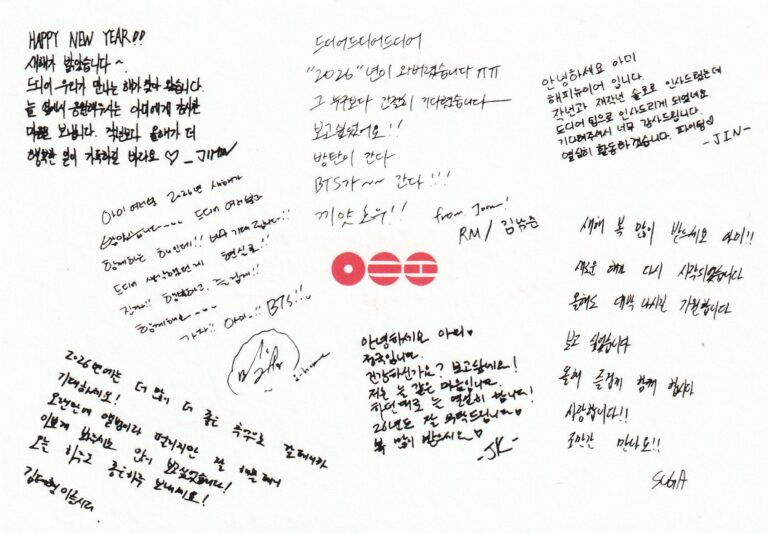 HAPPY NEW YEAR!!
새해가 밝았습니다~
드디어 우리가 만나는 해가 찾아 왔습니다.
늘 옆에서 응원해주시는 아미에게 감사한
마음을 보냅니다. 작년보다 올해가 더
행복한 일이 가득하길 바라요 ♡ _ JIMIN
드디어드디어드디어
"2026"년이 와버렸습니다 ㅠㅠ
그 누구보다 간절히 기다렸습니다
보고싶었어요!!
방탄이 간다
BTS가~~ 간다!!!
끼얏호우!!
from Joon!
RM / 김남준
안녕하세요 아미
해피뉴이어 입니다.
작년과 재작년 솔로로 인사드렸는데
드디어 팀으로 인사드리게 되었네요
기다려주셔서 너무 감사드립니다.
열심히 활동하겠습니다. 파이팅♡
-JIN-
아미 여러분 2026년 새해가
밝았습니다~~~~ 드디어 여러분과
함께하는 해인데!! 너무 기대됩니다!!
드디어 생각했던게 현실로!!
진짜!! 행복하고, 즐겁게!!
함께해요~~~~
가자!! 아미!! BTS!!
새해 복 많이 받으세요 아미!!
새로운 해가 다시 시작되었습니다
올해도 대박 나시길 기원합니다
보고 싶었습니다
올해 즐겁게 함께 합시다
사랑합니다!!
조만간 만나요!!
SUGA
2026년에는 더 많이 더 좋은 추억으로
기대하세요!
오랜만에 앨범이라 떨리지만 잘
이쁘게 봐주시요 많이 보고싶었습니다!
오늘 하루도 좋은하루 보내세요!
김태형 이었습니다.
안녕하세요 아미♥
정국입니다.
건강하신가요? 보고싶네요!
저는 늘 같은 마음입니다.
하던대로 늘 열심히 합니다!
26년도 잘 부탁드립니다♡
복 많이 받으시오♡
-JK-